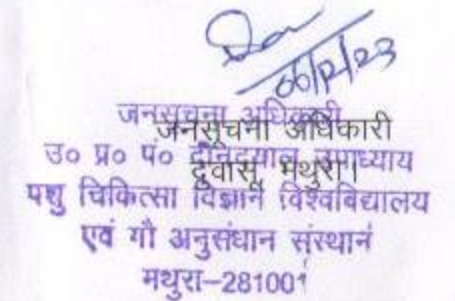 06/12/23
जनसूचना अधिकारी
जनसूचना अधिकारी
उ० प्र० पं० दीनदयाल उपाध्याय
दुवासू, मथुरा।
पशु चिकित्सा विज्ञान विश्वविद्यालय
एवं गौ अनुसंधान संस्थान
मथुरा-281001